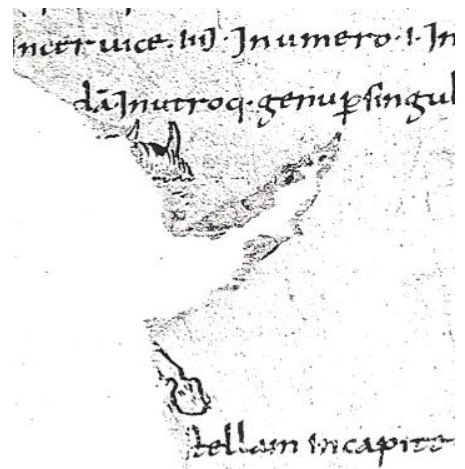 in cervice · iiij · In umero · i · In
dā In utroq· genu ꝑ singul
tellam in capite